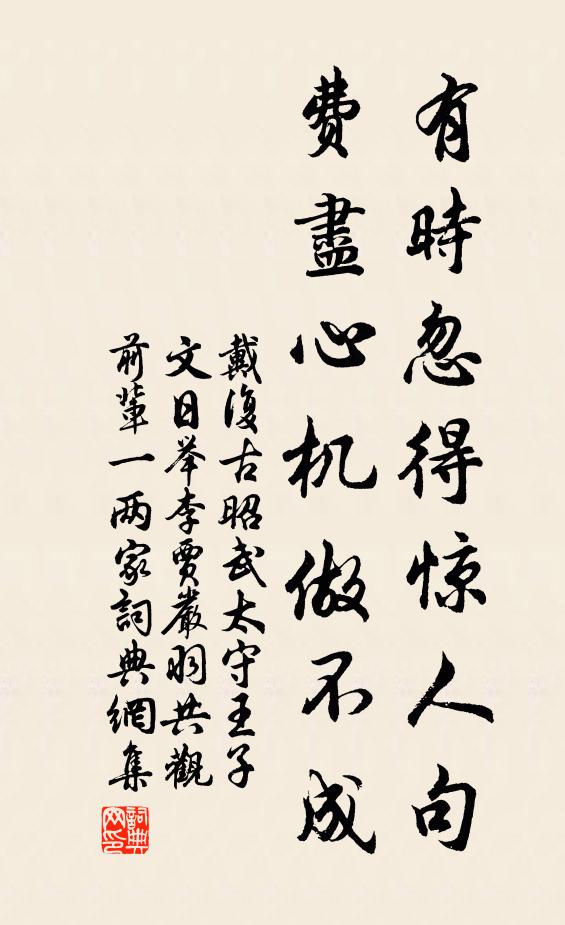 有時忽得惊人句
费盡心机做不成
戴復古昭武太守王子
文日举李賈嚴羽共觀
前輩一两家詞典網集
詞典网印